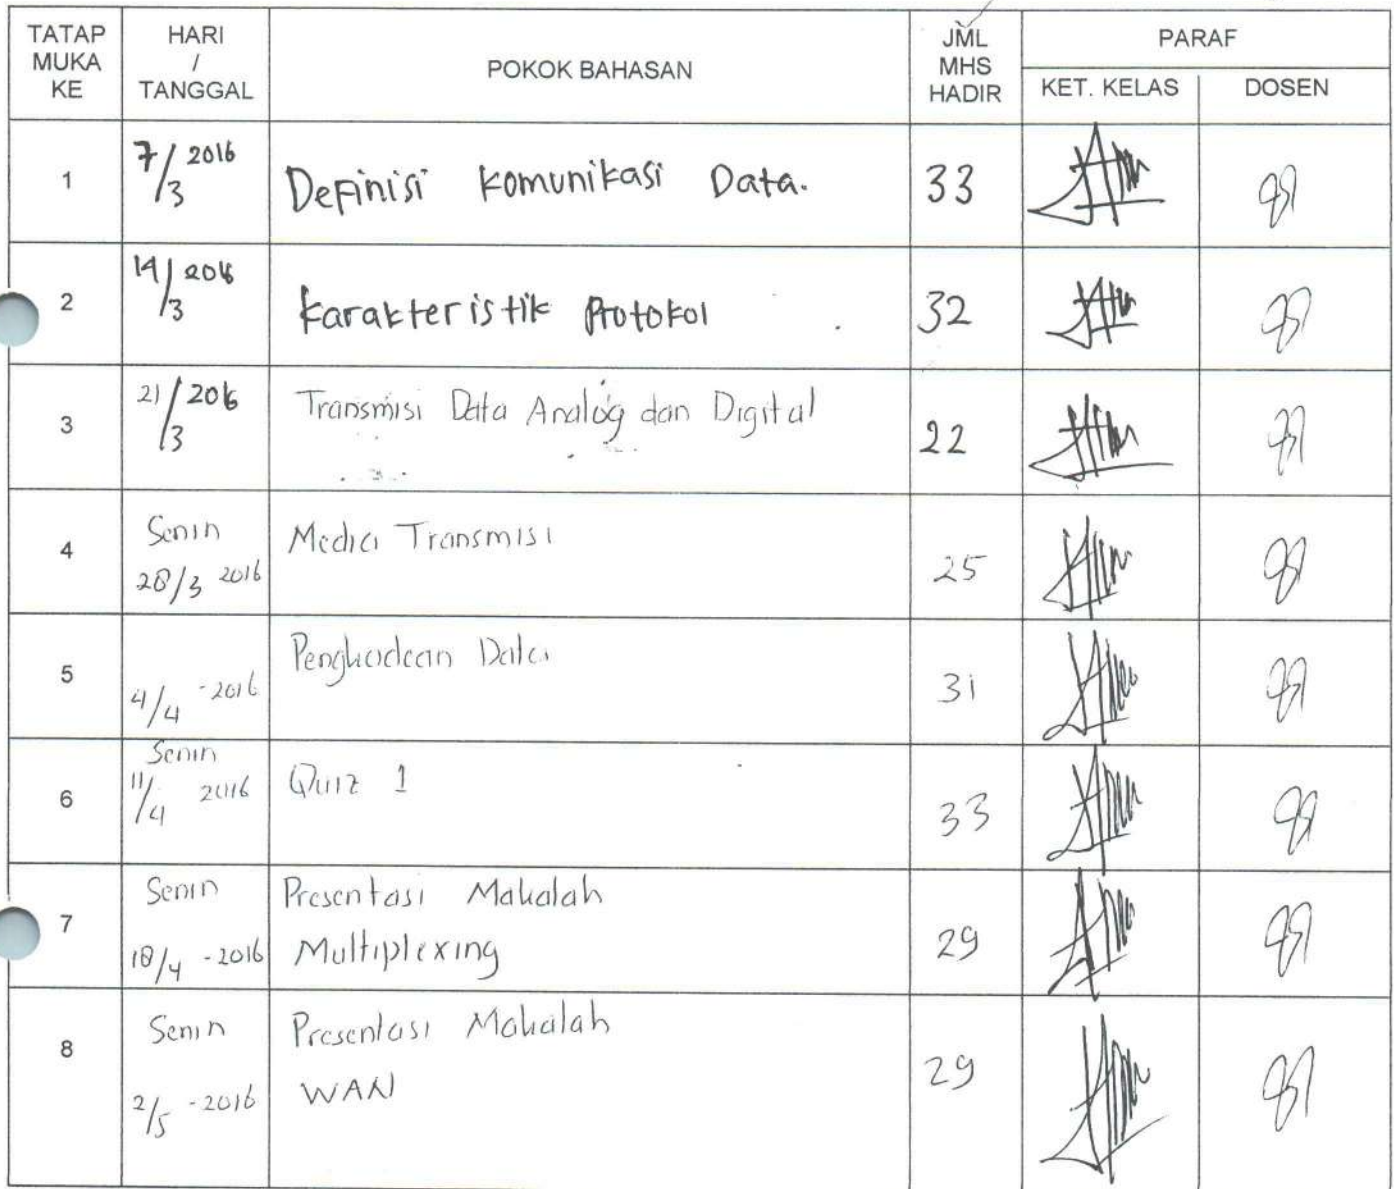 TATAP MUKA KE	HARI / TANGGAL	POKOK BAHASAN	JML MHS HADIR	PARAF
KET. KELAS	DOSEN
1	7/3 2016	Definisi Komunikasi Data.	33
2	14/3 2016	Karakteristik Protokol	32
3	21/3 2016	Transmisi Data Analog dan Digital	22
4	Senin 28/3 2016	Media Transmisi	25
5	4/4 -2016	Pengkodean Data	31
6	Senin 11/4 2016	Quiz 1	33
7	Senin 18/4 -2016	Presentasi Makalah Multiplexing	29
8	Senin 2/5 -2016	Presentasi Makalah WAN	29